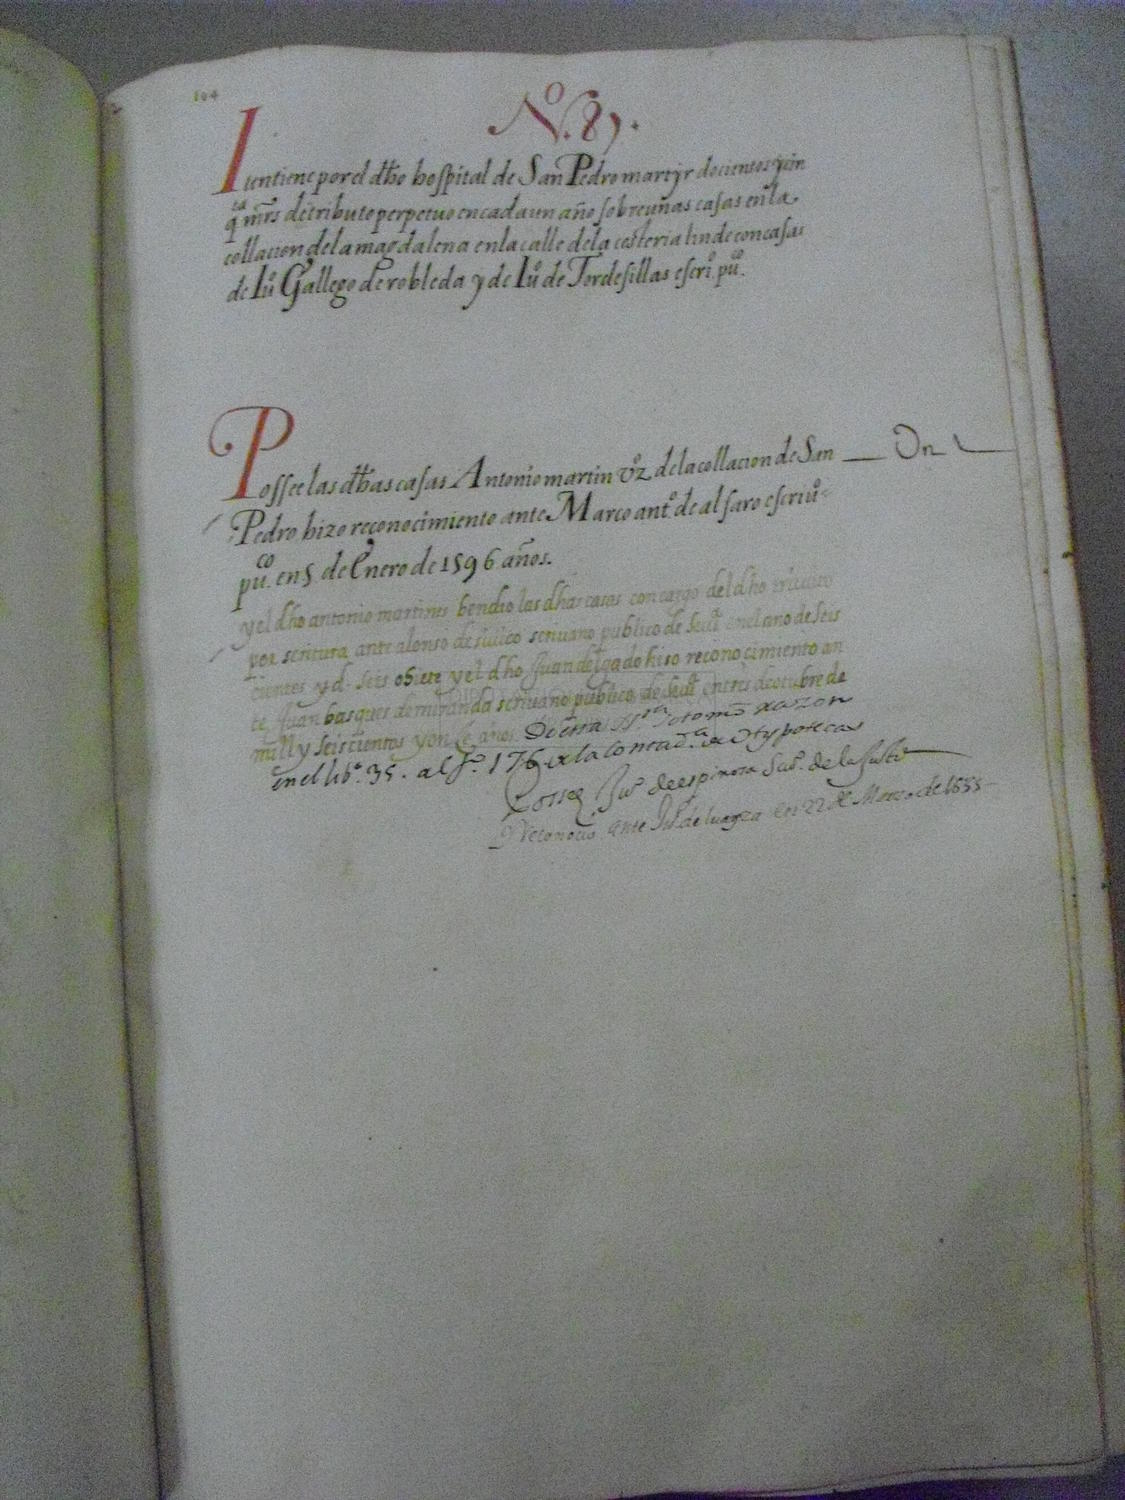 104
Nº. 87.
Iten tiene por el dho hospital de San Pedro martyr docientos y cin
qta mrs de tributo perpetuo en cada un año sobre unas casas en la
collacion de la magdalena en la calle de la cesteria linde con casas
de Iuº Gallego de robleda y de Iuº de Tordesillas escriº puº.
Possee las dhas casas Antonio martin vºz de la collacion de San
Pedro hizo reconocimiento ante Marco antº de alfaro escriuº
puco. en 5 de Enero de 1596 años.
y el dho antonio martines bendio las dhas casas con cargo del dho tributo
por scritura ante alonso de scriuano publico de Seuª en el ano de Seis
cientos y d seis o siete y el dho Juan delgado hiso reconocimiento an
te Juan basques de miranda scriuano publico de Seuª en tres de otubre de
mill y seiscientos y onse años. se tomo razon
en el libº. 35. al fº. 176 de la contadª de ypotecas
Possee Juº de espinosa
Reconocio ante de luayza en 22 de Marzo de 1655